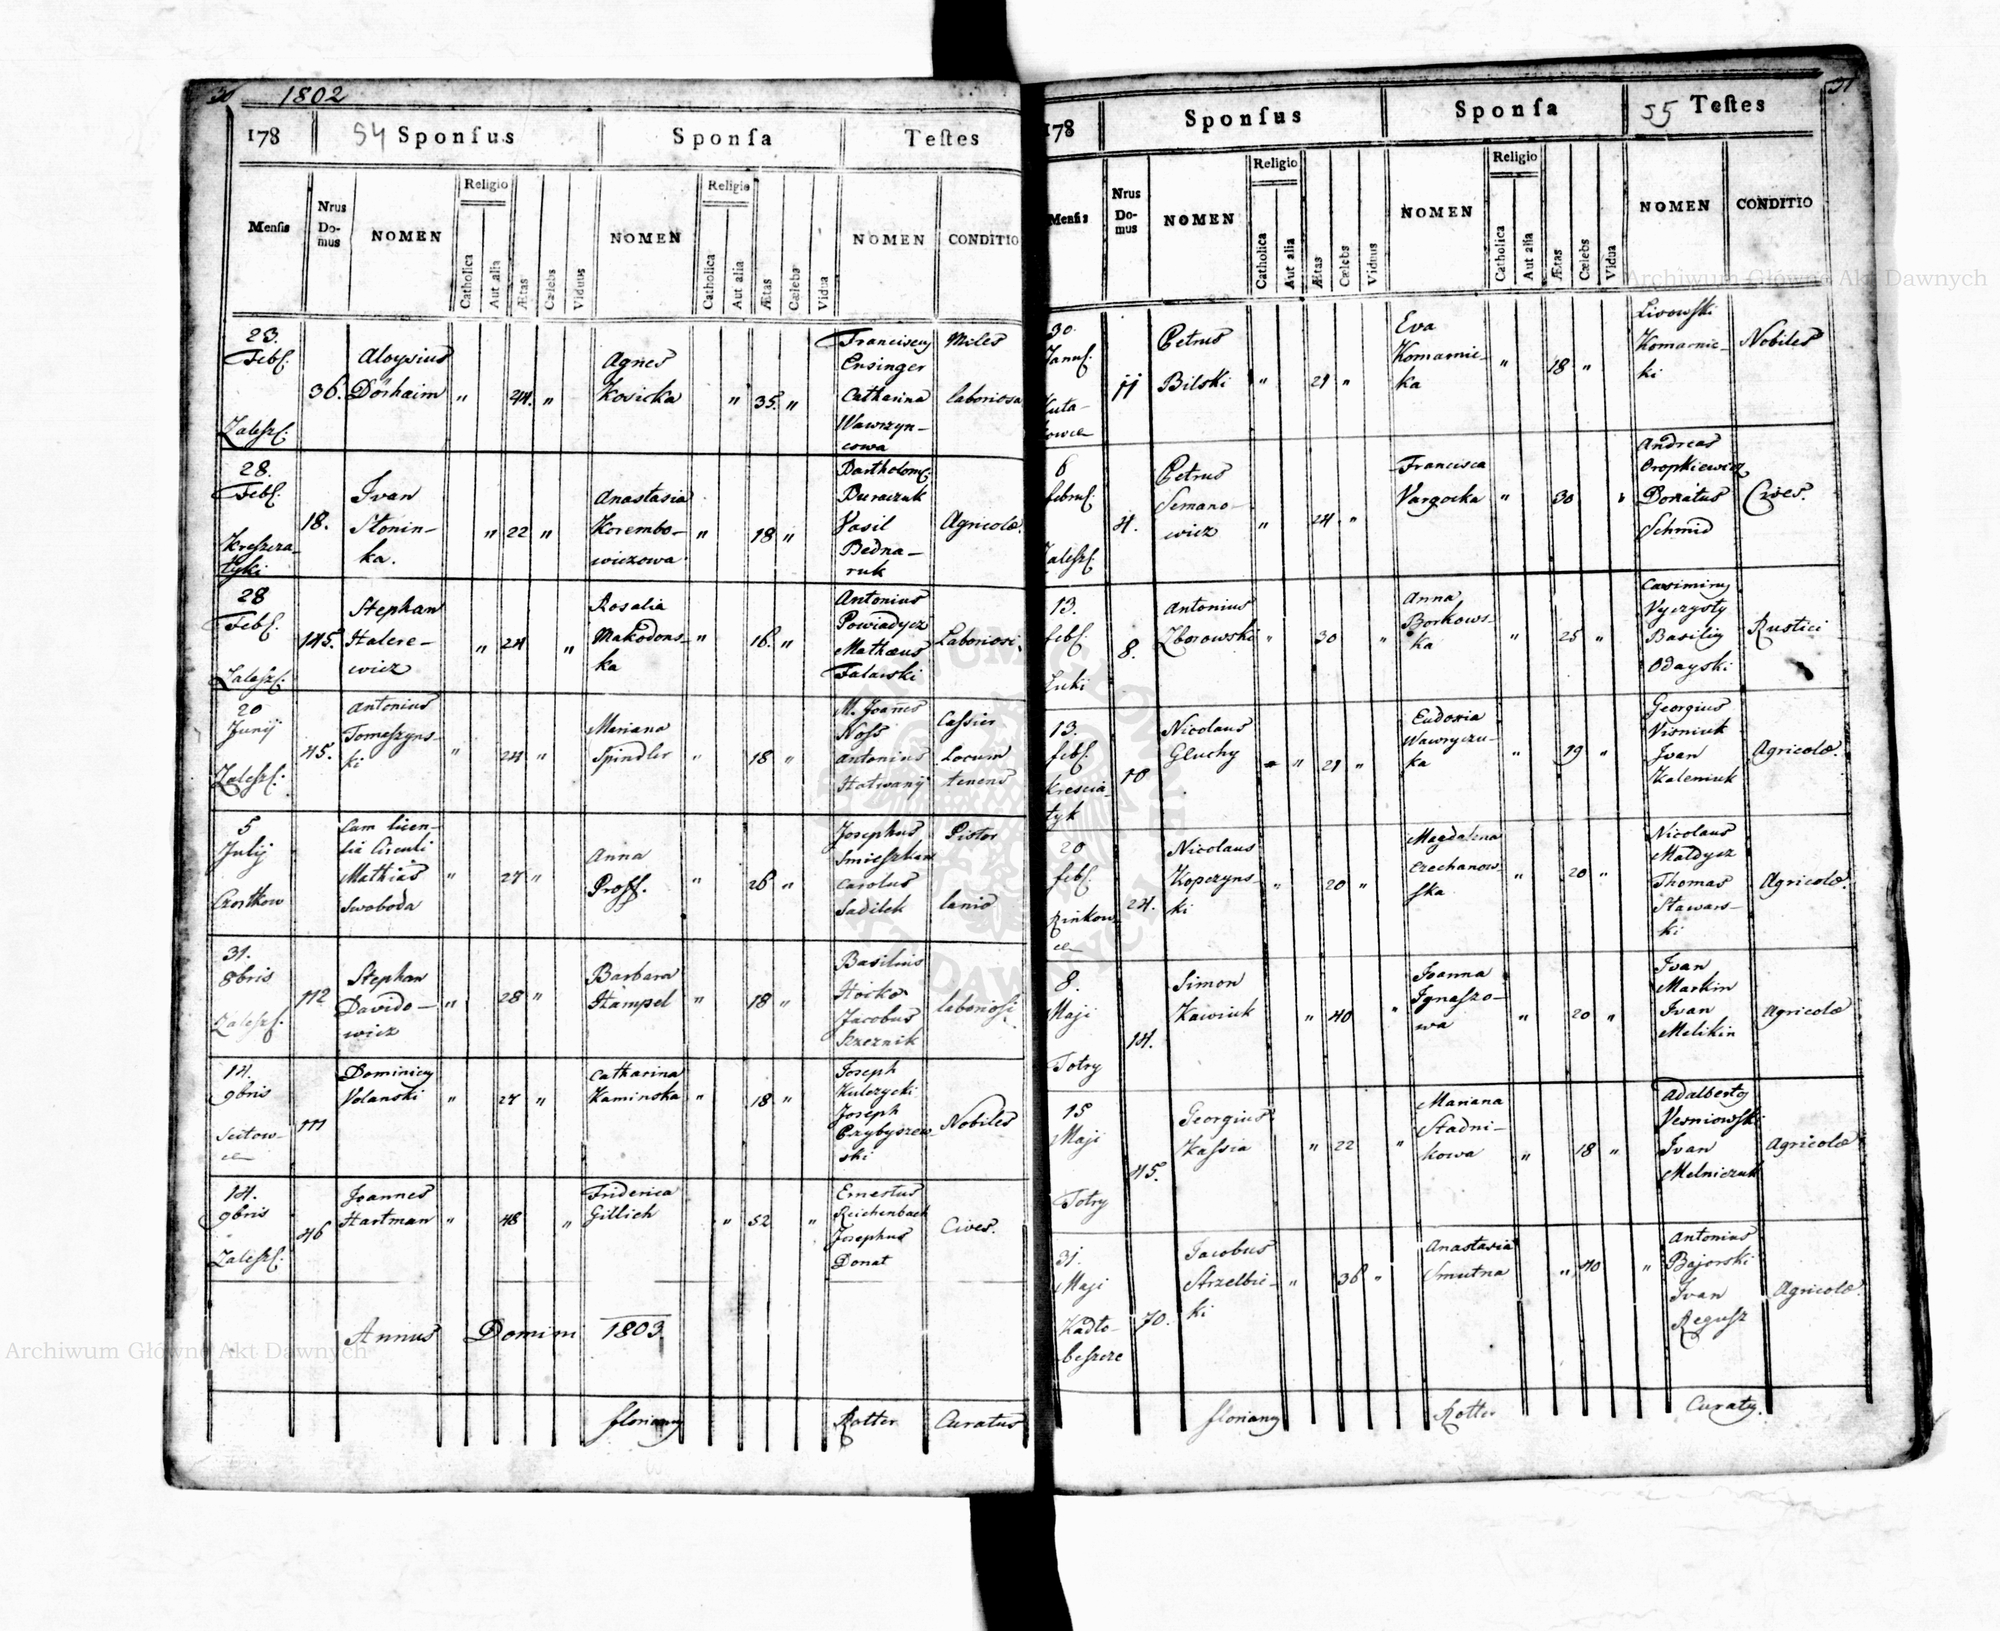 30 1802
178 54 Sponſus Sponſa Teſtes
Menſis Nrus Do-mus NOMEN Religio Catholica Aut alia Ætas Cœlebs Viduus NOMEN Religio Catholica Aut alia Ætas Cœlebs Vidua NOMEN CONDITIO
23. Febſ. Zaleſzſ: 36. Aloysius Dörhaim " 24. " Agnes Kosicka " 35. " Franciscus Ensinger Catharina Wawrzyn-cowa Miles laboriosa
28. Febſ. Kreszcza-tyki 18. Ivan Stonin-ka. " 22 " Anastasia Korembo-wiczowa " 18 " Bartholomſ. Buraczuk Vasil Bedna-ruk Agricolæ.
28 Febſ. Zaleſzſ: 145. Stephan Halere-wicz " 24 " Rosalia Makodons-ka " 16. " Antonius Powiadycz Mathæus Falawski Laboriosi.
20 Junij Zaleſzſ: 45. Antonius Tomaſzyns-ki " 24 " Mariana Spindler " 18 " M. Joañes Noſs Antonius Hatwanÿ Caſsier Locum tenens
5 Julij Czortkow Cum licen-tia Circuli Mathias Swoboda " 27 " Anna Proſſ. " 26 " Josephus Carolus Sadilek Pistor lanio
31. 8bris Zaleſzſ. 112 Stephan Davido-wicz " 28 " Barbara Hampel " 18 " Basilius Hocko Jacobus Szeznik laborioſi.
14. 9bris Seitow-ce 111 Dominicus Volanski " 27 " Catharina Kaminska " 18 " Joseph Kulczycki Joseph Przybyszew-ski Nobiles
14. 9bris Zaleſzſ. 46 Joannes Hartman " 48 " Friderica Gillich " 52 " Ernestus Reichenbach Josephus Donat Cives.
Annus Domini 1803.
florianus Rotter Curatus
31
178 Sponſus Sponſa 55 Teſtes
Menſis Nrus Do-mus NOMEN Religio Catholica Aut alia Ætas Cœlebs Viduus NOMEN Religio Catholica Aut alia Ætas Cœlebs Vidua NOMEN CONDITIO
30. Januſ. 11 Petrus Bilski " 21 " Eva Komarnic-ka " 18 " Livowski Komarnic-ki Nobiles
6 februſ. Zaleſzſ. 4. Petrus Semano-wicz " 24 " Francisca Vargocka " 30 " Andreas Oropkiewicz Donatus Schmid Cives.
13. febſ. Luki 8. Antonius Zborowski " 30 " Anna Borkows-ka " 25 " Casimirus Vyczysty Basilius Odayski Rustici
13. febſ. Krescia-tyk 10 Nicolaus Gluchy " 21 " Eudoxia Wawryczu-ka " 19 " Georgius Visniuk Ivan Kaleniuk Agricolæ.
20 febſ. Zinkow-ce 24. Nicolaus Kopczyns-ki " 20 " Magdalena Czechanow-ska " 20 " Nicolaus Maldycz Thomas Stawars-ki Agricolæ.
8. Maji Totry 14. Simon Kawiuk " 40 " Joanna Ignaſzo-wa " 20 " Ivan Markin Ivan Melikin Agricolæ
15 Maji Totry 45. Georgius Kaſsia " 22 " Mariana Stadni-kowa " 18 " Adalbertus Vesniowski Ivan Melniczuk Agricolæ
31. Maji Kadlo-beſzcze 70. Jacobus Strzelbic-ki " 36 " Anastasia Smutna " 40 " Antonius Bajorski Ivan Reguſz Agricolæ.
florianus Rotter Curatus.
Archiwum Główne Akt Dawnych
Archiwum Główne Akt Dawnych
ARCHIWUM GŁÓWNE AKT DAWNYCH